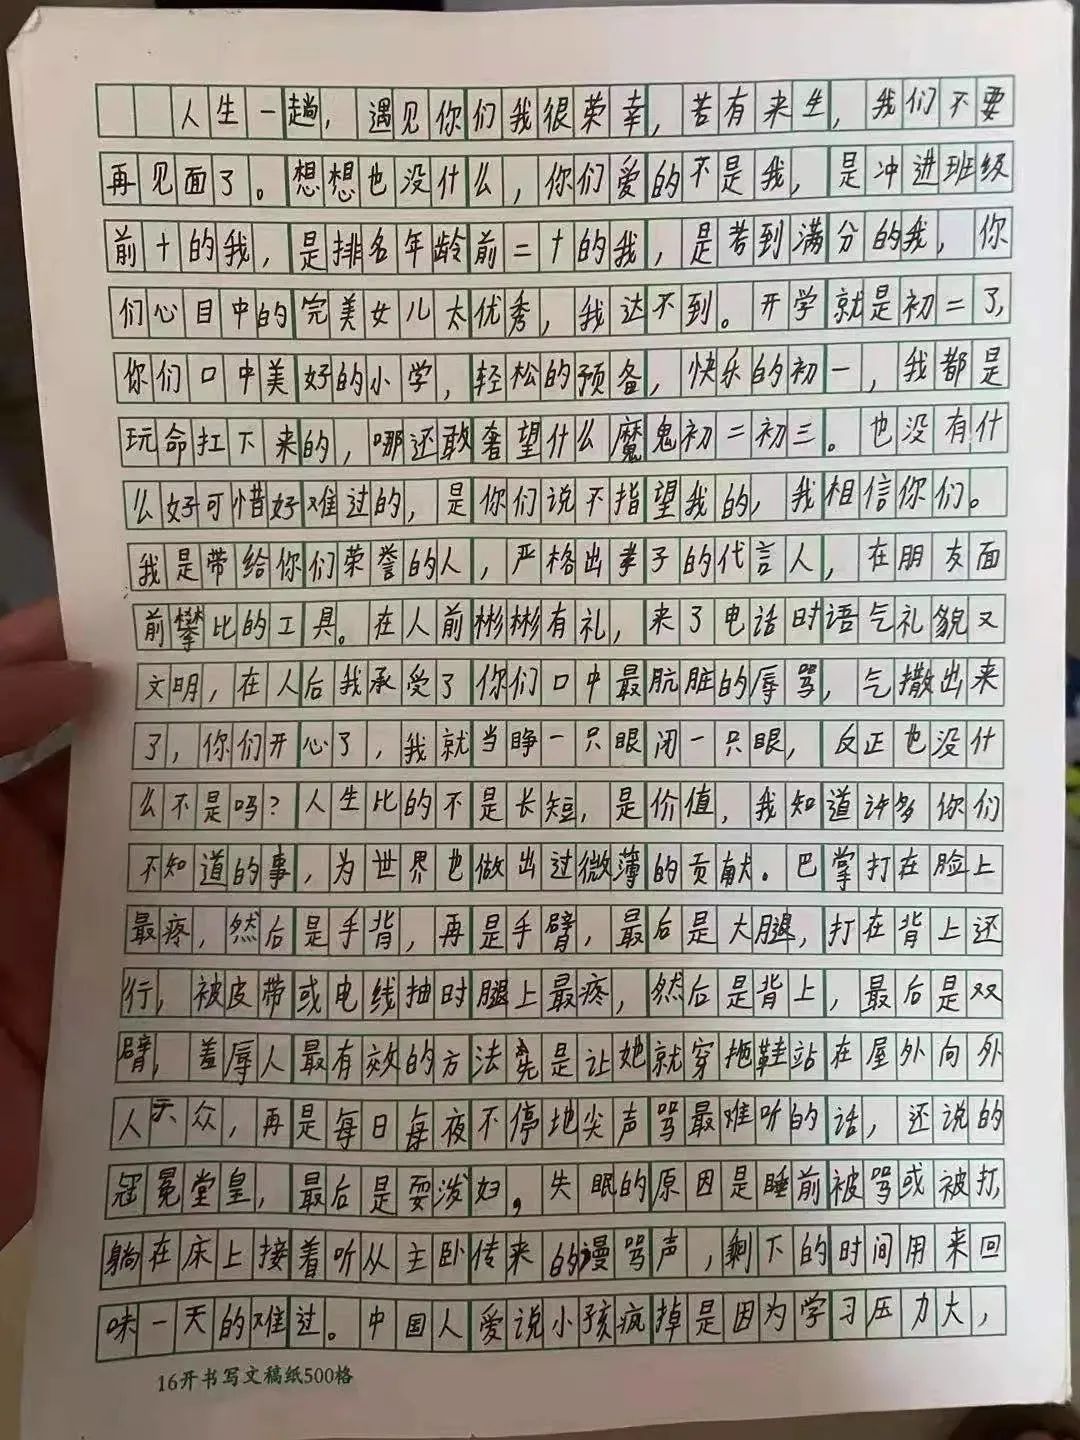 人生一趟，遇见你们我很荣幸，苦有来生，我们不要
再见面了。想想也没什么，你们爱的不是我，是冲进班级
前十的我，是排名年龄前二十的我，是考到满分的我，你
们心目中的完美女儿太优秀，我达不到。开学就是初二了，
你们口中美好的小学，轻松的预备，快乐的初一，我都是
玩命扛下来的，哪还敢奢望什么魔鬼初二初三。也没有什
么好可惜好难过的，是你们说不指望我的，我相信你们。
我是带给你们荣誉的人，严格出孝子的代言人，在朋友面
前攀比的工具。在人前彬彬有礼，来了电话时语气礼貌又
文明，在人后我承受了你们口中最肮脏的辱骂，气撒出来
了，你们开心了，我就当睁一只眼闭一只眼，反正也没什
么不是吗？人生比的不是长短，是价值，我知道许多你们
不知道的事，为世界也做出过微薄的贡献。巴掌打在脸上
最疼，然后是手背，再是手臂，最后是大腿，打在背上还
行，被皮带或电线抽时腿上最疼，然后是背上，最后是双
臂，羞辱人最有效的方法先是让她就穿拖鞋站在屋外向外
人示众，再是每日每夜不停地尖声骂最难听的话，还说的
冠冕堂皇，最后是耍泼妇。失眠的原因是睡前被骂或被打，
躺在床上接着听从主卧传来的谩骂声，剩下的时间用来回
味一天的难过。中国人爱说小孩疯掉是因为学习压力大，
16开书写文稿纸500格